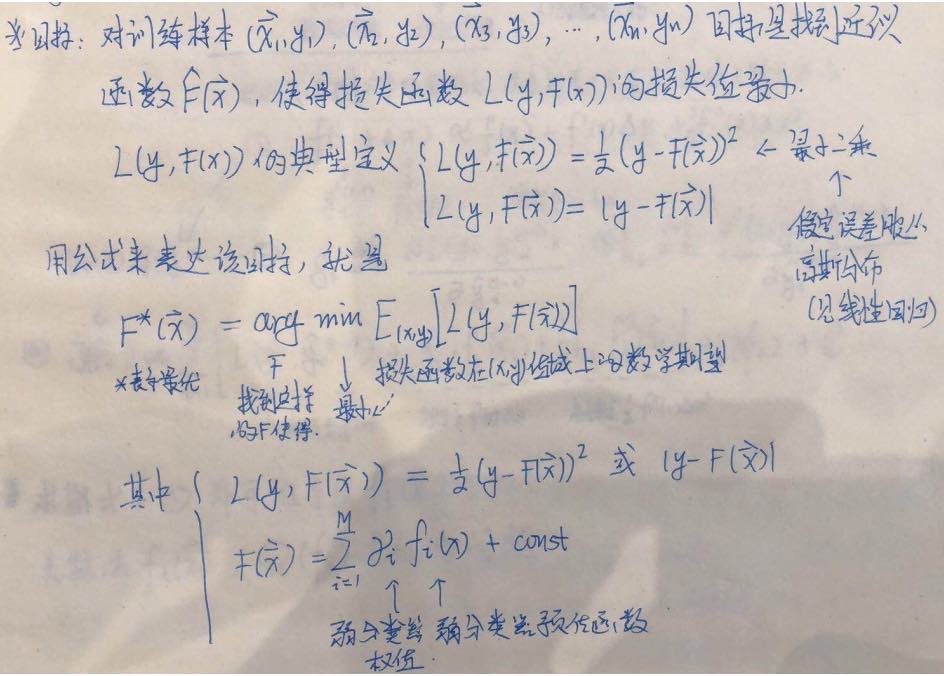 ※目标: 对训练样本 (x⃗₁, y₁), (x⃗₂, y₂), (x⃗₃, y₃), ⋯, (x⃗n, yn) 目标是找到近似
函数 F̂(x⃗), 使得损失函数 L(y, F(x)) 的损失值最小.
L(y, F(x)) 的典型定义 { L(y, F(x⃗)) = ½(y - F(x⃗))² ← 最小二乘
L(y, F(x⃗)) = |y - F(x⃗)|
↑
假定误差服从
高斯分布
(见线性回归)
用公式来表达该目标, 就是
F*(x⃗) = arg min E(x,y)[L(y, F(x⃗))]
F
*表示最优
找到这样
的F使得.
↓
最小
损失函数在(x,y)值域上的数学期望
其中 { L(y, F(x⃗)) = ½(y - F(x⃗))² 或 |y - F(x⃗)|
F(x⃗) = ∑_{i=1}^{M} γᵢ fᵢ(x) + const
↑ ↑
弱分类器 弱分类器预估函数
权值.